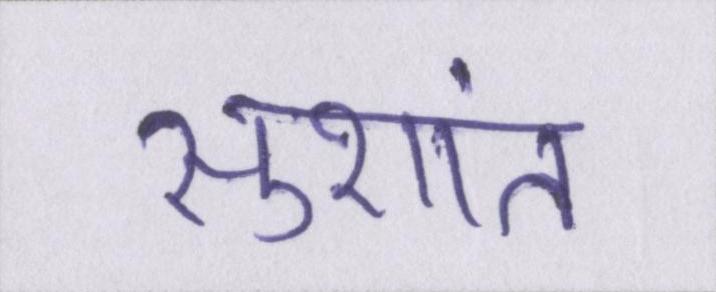 सुशांत